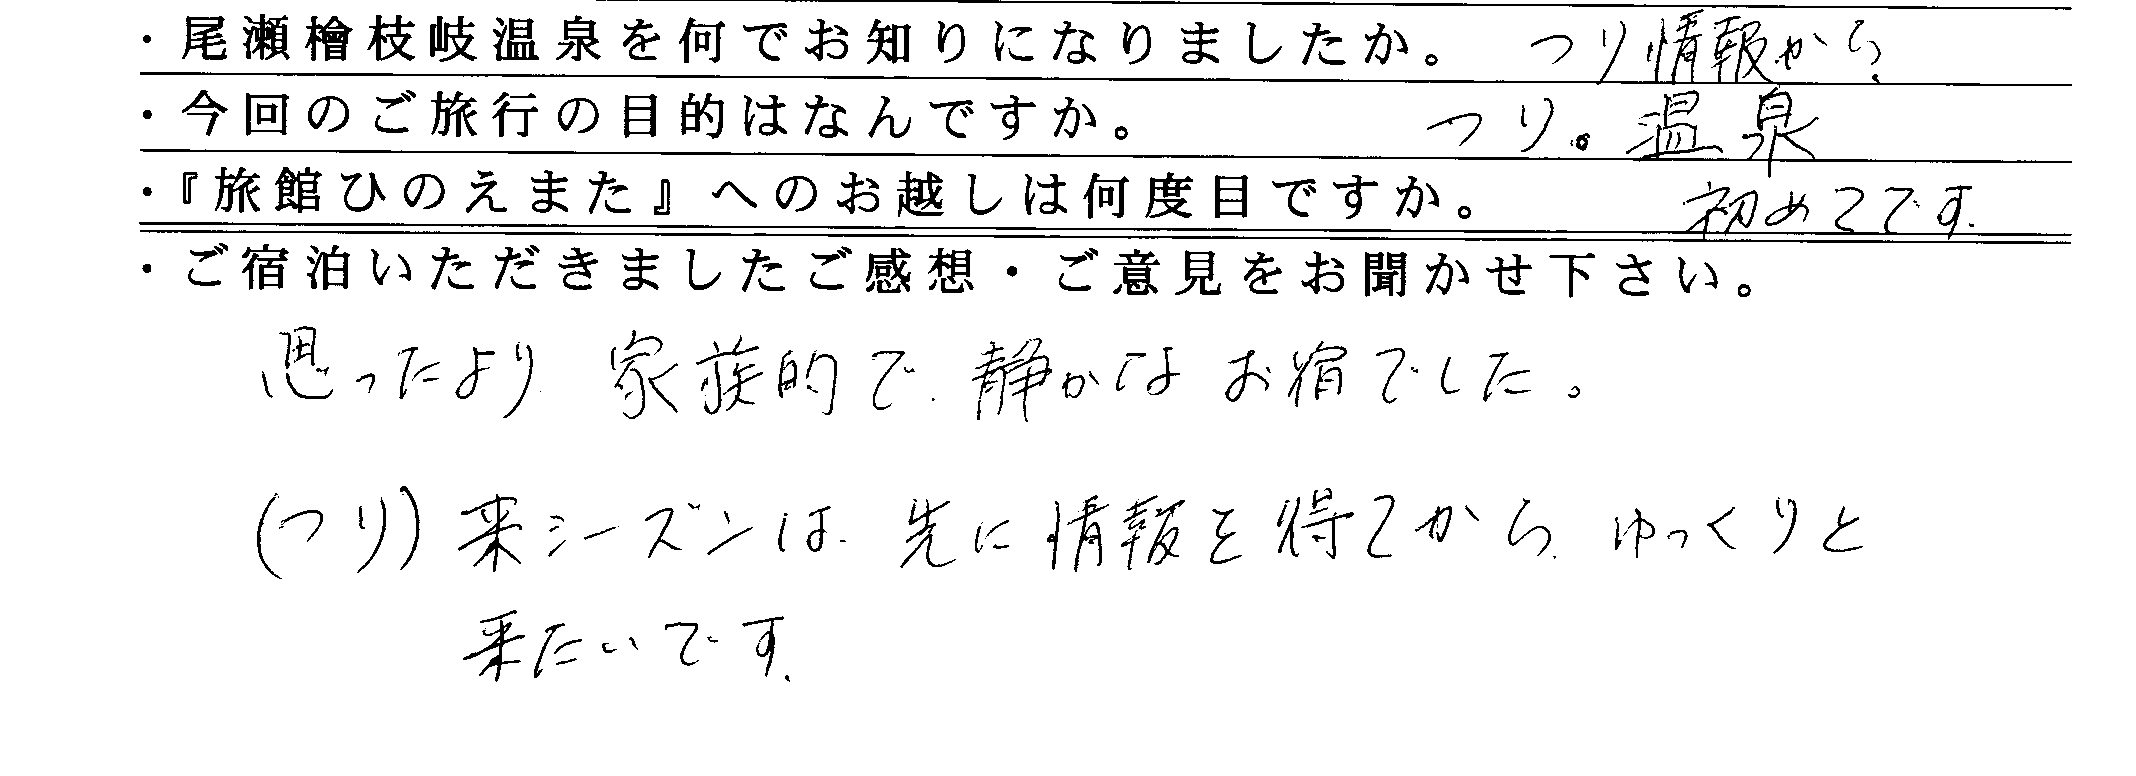 ・尾瀬檜枝岐温泉を何でお知りになりましたか。 つり情報から
・今回のご旅行の目的はなんですか。 つり。温泉
・『旅館ひのえまた』へのお越しは何度目ですか。 初めてです.
・ご宿泊いただきましたご感想・ご意見をお聞かせ下さい。
思ったより 家族的で、静かな お宿でした。
(つり) 来シーズンは、先に情報を得てから、ゆっくりと
来たいです.